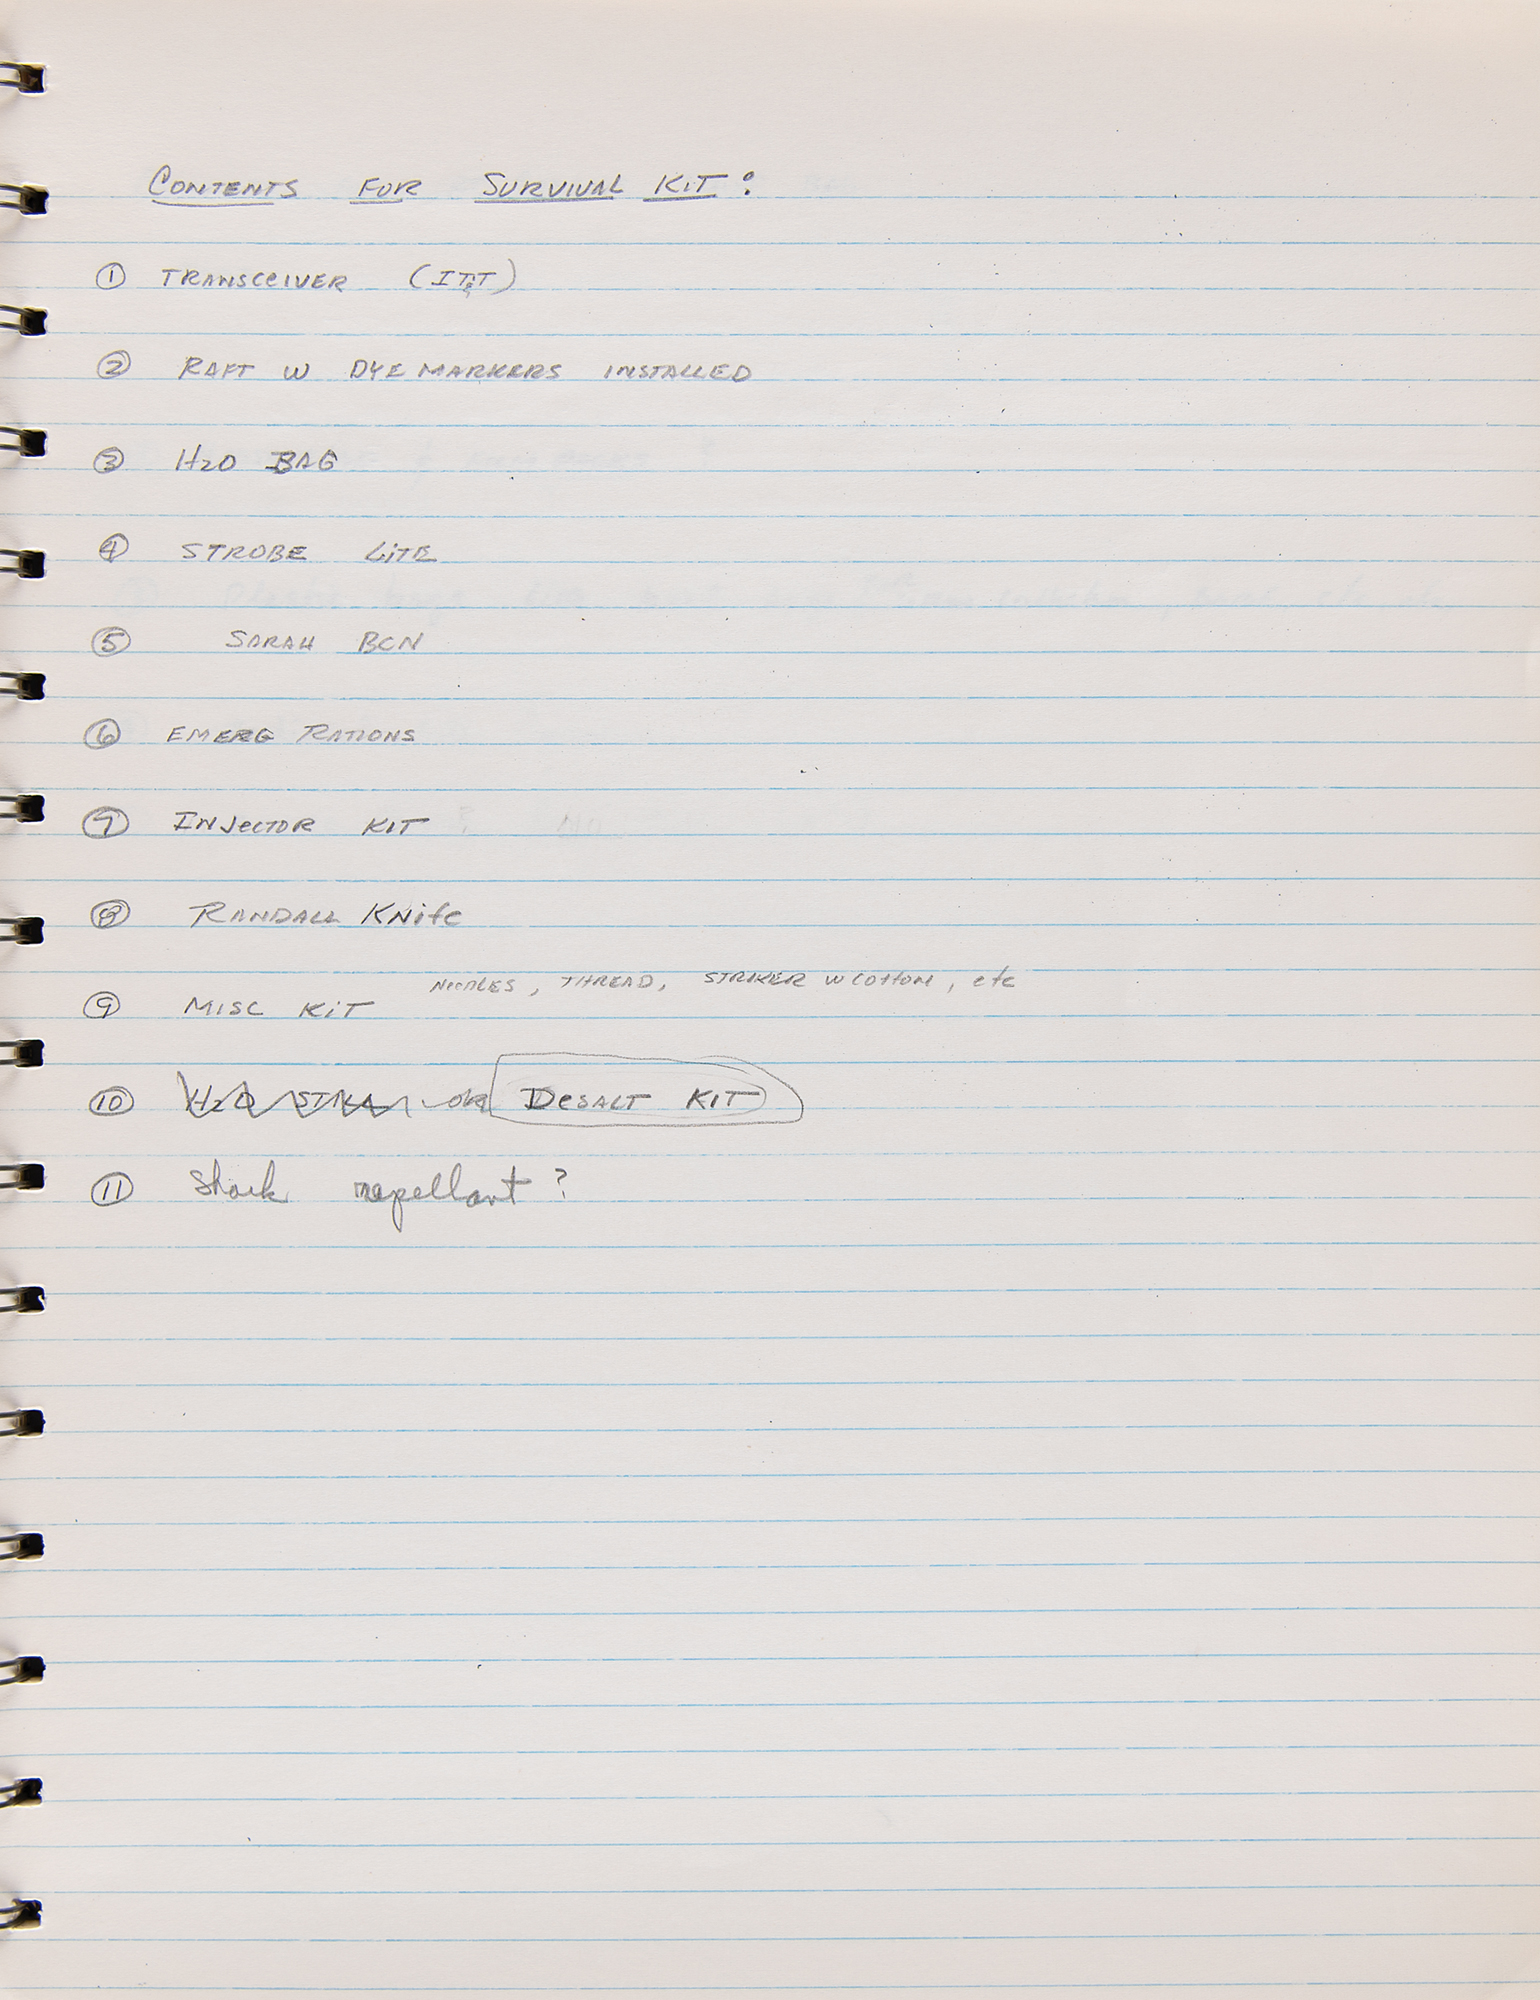 CONTENTS FOR SURVIVAL KIT:
① TRANSCEIVER (IT&T)
② RAFT W DYE MARKERS INSTALLED
③ H2O BAG
④ STROBE LITE
⑤ SARAH BCN
⑥ EMERG RATIONS
⑦ INJECTOR KIT
⑧ RANDALL KNIFE
NEEDLES, THREAD, STRIKER W COTTON, etc
⑨ MISC KIT
⑩ H2O OR DESALT KIT
⑪ Shark repellant?